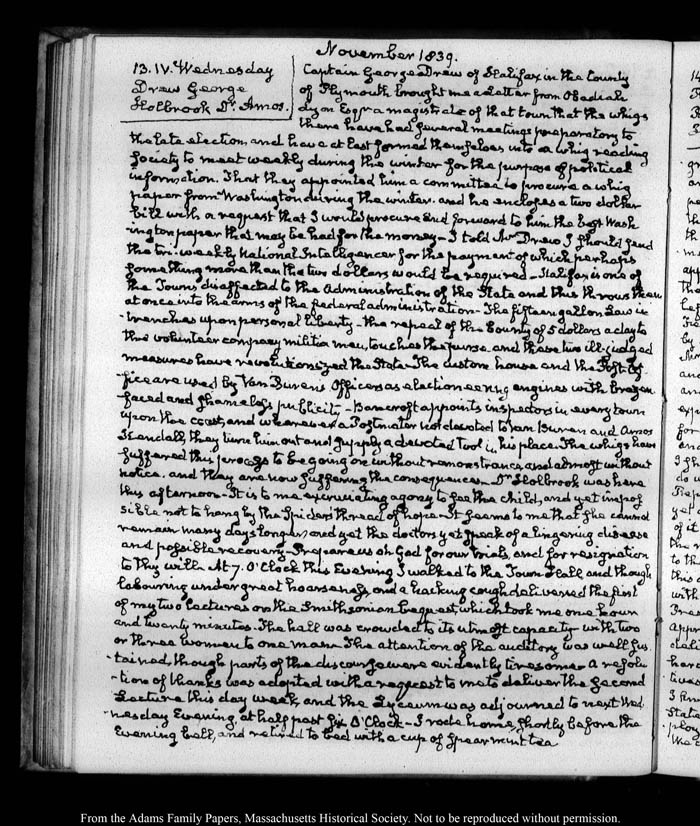 November 1839.
13. IV. Wednesday
Drew George
Holbrook Dr. Amos.
Captain George Drew of Halifax in the County
of Plymouth brought me a letter from Obadiah
Lyon Esqr a magistrate of that town that the whigs
there have had several meetings preparatory to
the late election, and have at last formed themselves into a whig reading
Society to meet weekly during the winter for the purpose of political
information. That they appointed him a committee to procure a whig
paper from Washington during the winter. and he encloses a two dollar
bill with a request that I would procure and forward to him the best Wash
ington paper that may be had for the money — I told Mr Drew I should send
the tri-weekly National Intelligencer for the payment of which perhaps
something more than the two dollars would be required — Halifax is one of
the Towns disaffected to the Administration of the State and thus throws them
at once into the arms of the federal administration — The fifteen gallon Law in
-trenches upon personal liberty — the repeal of the bounty of 5 dollars a day to
the volunteer company militia men, touches the purse. and these two ill-judged
measures have revolutionized the State — The custom house and the Post-Of-
-fice are used by Van Buren's Officers as electioneering engines with brazen
faced and shameless publicity — Bancroft appoints inspectors in every town
upon the coast, and wherever a Postmaster is not devoted to Van Buren and Amos
Kendall, they turn him out and supply a devoted tool in his place. The whigs have
suffered this process to be going on without remonstrance, and almost without
notice. and they are now suffering the consequences — Dr Holbrook was here
this afternoon — It is to me excruciating agony to see the child, and yet impos
sible not to hang by the Spider's thread of hope — It seems to me that she cannot
remain many days longer, and yet the doctors yet speak of a lingering disease
and possible recovery — Prepare us oh God for our trials, and for resignation
to thy will. At 7. O'Clock this Evening I walked to the Town Hall, and though
labouring under great hoarseness, and a hacking cough delivered the first
of my two Lectures on the Smithsonian bequest, which took me one hour
and twenty minutes. The hall was crowded to its utmost capacity with two
or three women to one man. The attention of the auditory was well sus
-tained, though parts of the discourse were evidently tiresome. A resolu
-tion of thanks was adopted with a request to me to deliver the second
Lecture this day week, and the Lyceum was adjourned to next Wed
-nesday Evening, at half past six O'Clock — I rode home, shortly before the
Evening bell, and retired to bed with a cup of spearmint tea
From the Adams Family Papers, Massachusetts Historical Society. Not to be reproduced without permission.